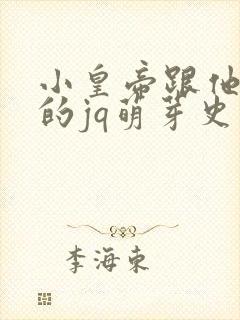 小皇帝跟他
的jq萌芽史
李海东